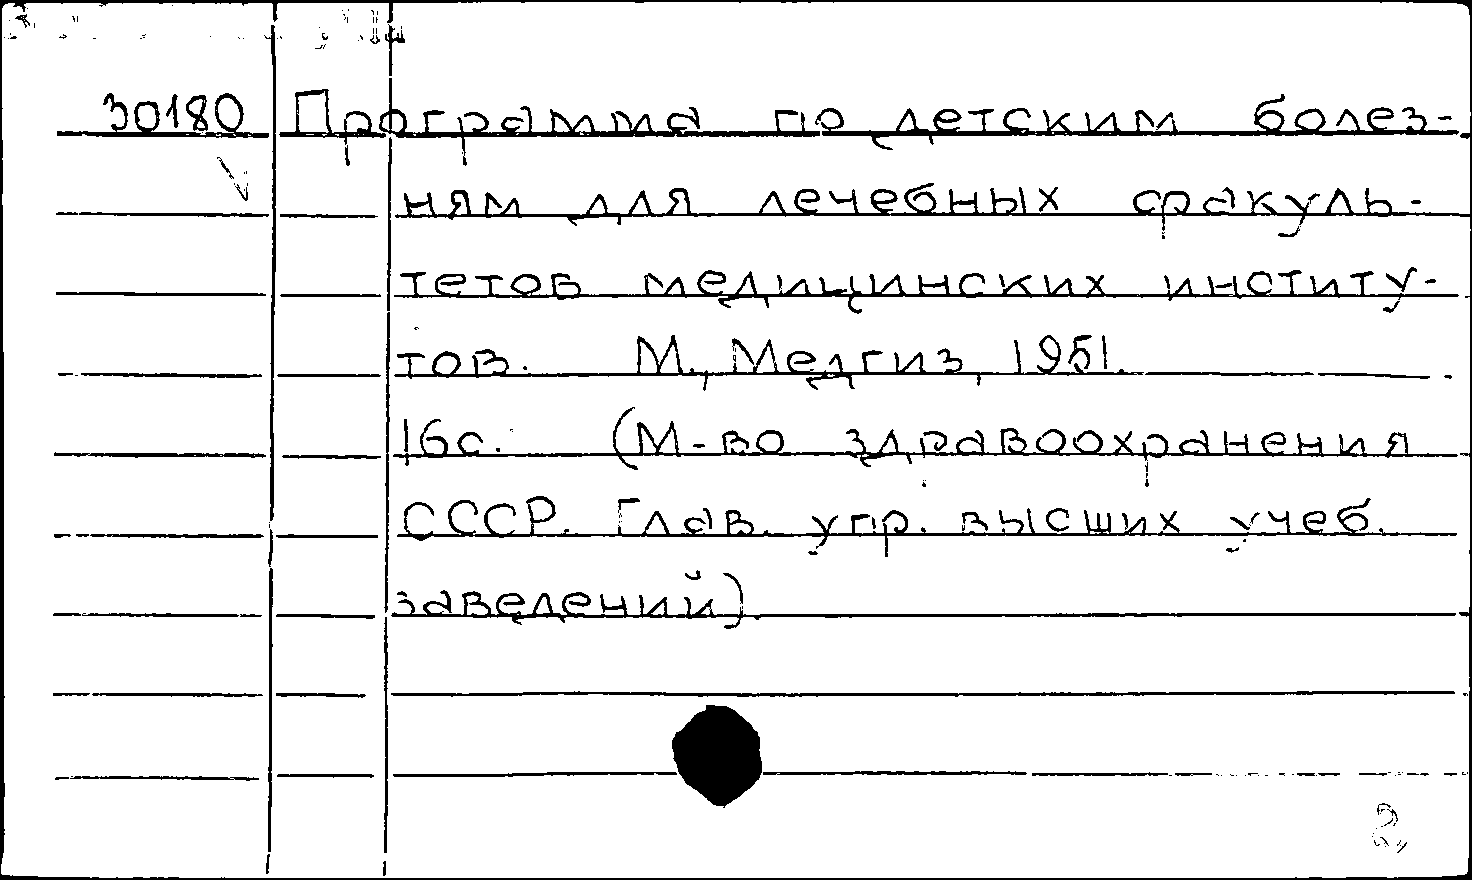 30180 Программа по детским болез-
ням для лечебных факуль-
тетов медицинских институ-
тов. М., Медгиз, 1951.
16с. (М-во здравоохранения
СССР. Глав. упр. высших учеб.
заведений).